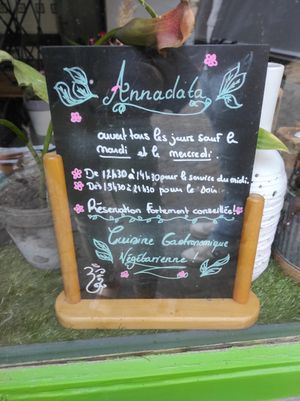 Annadata
ouvert tous les jours sauf le
mardi et le mercredi.
De 12h30 à 14h30 pour le service du midi.
Dès 19h30 à 21h30 pour le soir.
Réservation fortement conseillée!
Cuisine Gastronomique
Végétarienne!